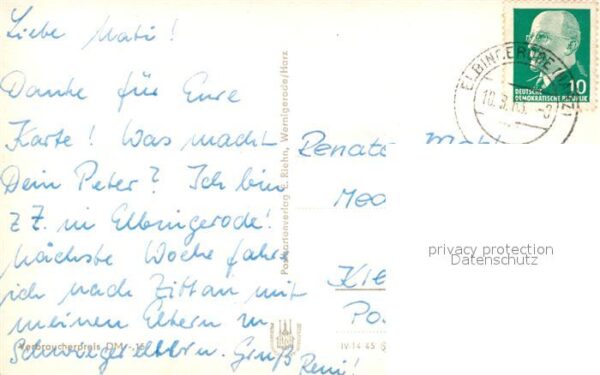 Liebe Mati!
Danke für Eure
Karte! Was macht
Dein Peter? Ich bin
z Z. in Elbingerode!
Nächste Woche fahre
ich nach Zittau mit
meinen Eltern u
Schwiegereltern. Gruß
Reni!
Verbraucherpreis DM
Postkartenverlag E. Riehn, Wernigerode/Harz
IV-14-45
ELBINGERODE (HARZ)
10
DEUTSCHE
DEMOKRATISCHE REPUBLIK
Renate
Kle
privacy protection
Datenschutz